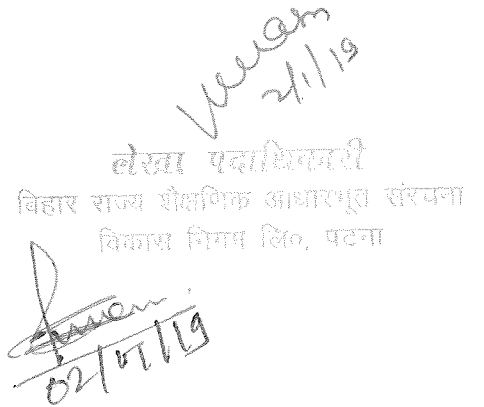 2/1/19
लेखा पदाधिकारी
बिहार राज्य शैक्षणिक आधारभूत संरचना
विकास निगम लि०, पटना
02/01/19